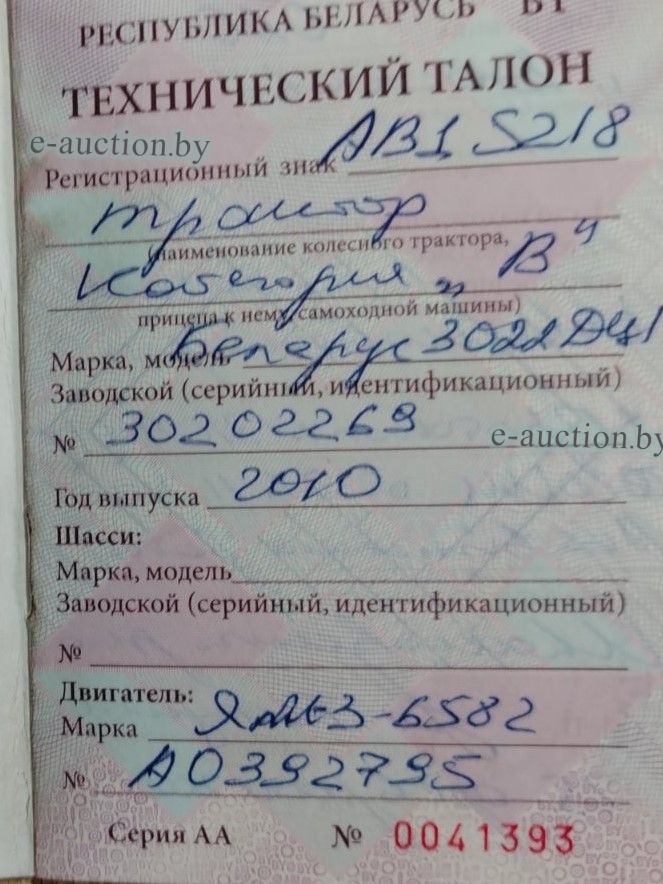 РЕСПУБЛИКА БЕЛАРУСЬ BY
ТЕХНИЧЕСКИЙ ТАЛОН
e-auction.by
Регистрационный знак АВ1 5218
трактор
(наименование колесного трактора,
категория „В"
прицепа к нему, самоходной машины)
Марка, модель Беларус 3022 ДЦ1
Заводской (серийный, идентификационный)
№ 30202269
e-auction.by
Год выпуска 2010
Шасси:
Марка, модель
Заводской (серийный, идентификационный)
№
Двигатель:
Марка ЯМЗ-6582
№ А0392795
Серия АА № 0041393